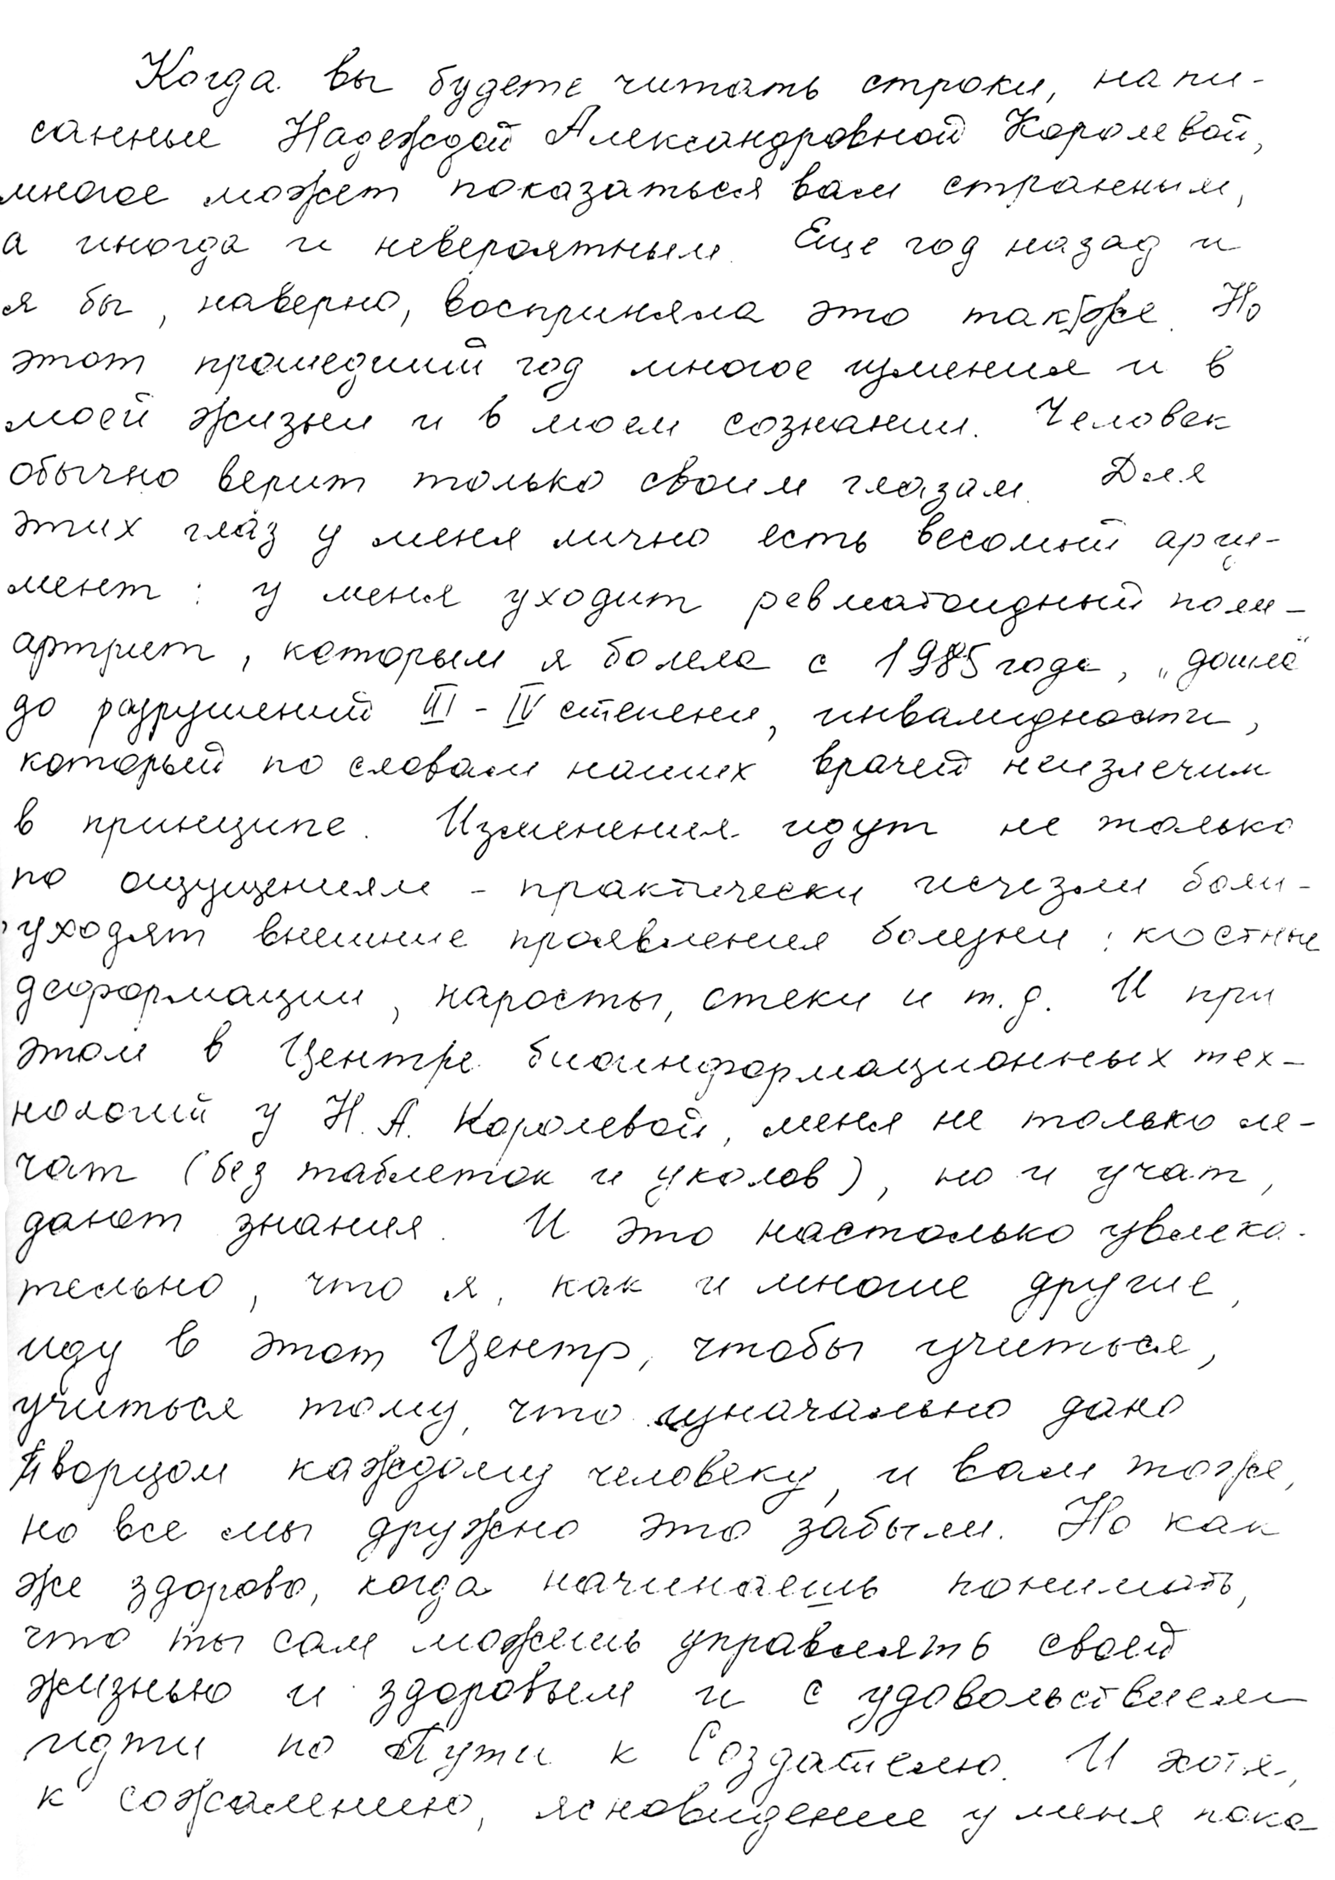 Когда вы будете читать строки, напи-
санные Надеждой Александровной Королевой,
многое может показаться вам странным,
а иногда и невероятным. Еще год назад и
я бы, наверно, восприняла это также. Но
этот прошедший год многое изменил и в
моей жизни и в моем сознании. Человек
обычно верит только своим глазам. Для
этих глаз у меня лично есть весомый аргу-
мент: у меня уходит ревматоидный поли-
артрит, которым я болела с 1985 года, „дошла"
до разрушений III - IV степени, инвалидности,
который по словам наших врачей неизлечим
в принципе. Изменения идут не только
по ощущениям - практически исчезли боли -
уходят внешние проявления болезни: костные
деформации, наросты, отеки и т.д. И при
этом в Центре биоинформационных тех-
нологий у Н.А. Королевой, меня не только ле-
чат (без таблеток и уколов), но и учат,
дают знания. И это настолько увлека-
тельно, что я, как и многие другие,
иду в этот Центр, чтобы учиться,
учиться тому, что изначально дано
Творцом каждому человеку, и вам тоже,
но все мы дружно это забыли. Но как
же здорово, когда начинаешь понимать,
что ты сам можешь управлять своей
жизнью и здоровьем и с удовольствием
идти по Пути к Создателю. И хотя,
к сожалению, ясновидение у меня пока